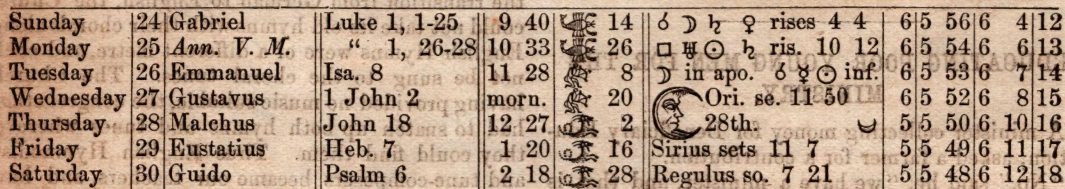 Sunday 24 Gabriel Luke 1, 1-25 9 40 14 ☌ ☽ ♄ ♀ rises 4 4 6 5 56 6 4 12
Monday 25 Ann. V. M. “ 1, 26-28 10 33 26 □ ♅ ☉ ♄ ris. 10 12 6 5 54 6 6 13
Tuesday 26 Emmanuel Isa. 8 11 28 8 ☽ in apo. ☌ ☿ ☉ inf. 6 5 53 6 7 14
Wednesday 27 Gustavus 1 John 2 morn. 20 Ori. se. 11 50 6 5 52 6 8 15
Thursday 28 Malchus John 18 12 27 2 28th. 5 5 50 6 10 16
Friday 29 Eustatius Heb. 7 1 20 16 Sirius sets 11 7 5 5 49 6 11 17
Saturday 30 Guido Psalm 6 2 18 28 Regulus so. 7 21 5 5 48 6 12 18